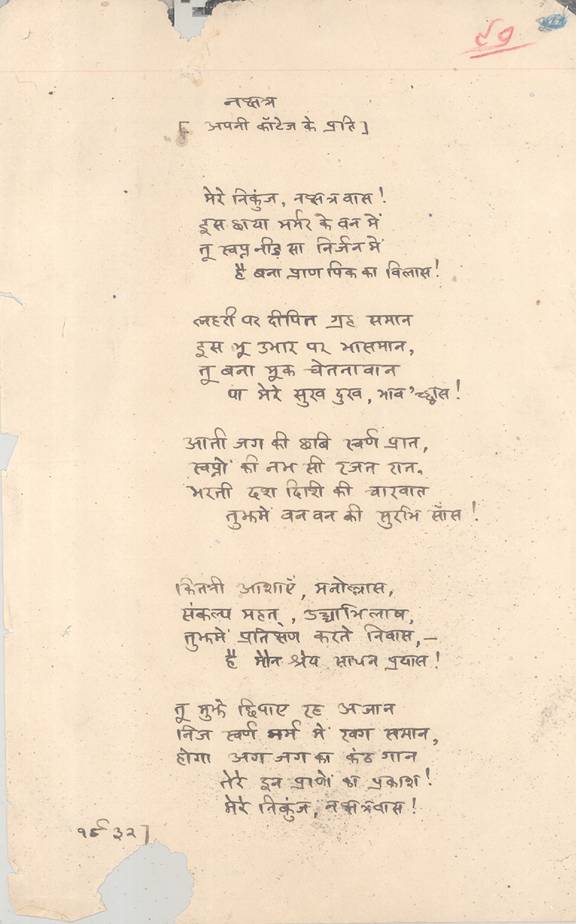 ९७
नक्षत्र
[ अपनी कॉटेज के प्रति ]
मेरे निकुंज, नक्षत्रवास !
इस छाया मर्मर के वन में
तू स्वप्न नीड़ सा निर्जन में
है बना प्राण पिक का विलास !
लहरी पर दीपित ग्रह समान
इस भू उभार पर भासमान,
तू बना मूक चेतनावान
पा मेरे सुख दुख, भाव'च्छ्वास !
आती जग की छबि स्वर्ण प्रात,
स्वप्नों की नभ सी रजत रात,
भरती दश दिशि की चारवात
तुझमें वन वन की सुरभि साँस !
कितनी आशाएँ, मनोल्लास,
संकल्प महत्, उच्चाभिलाष,
तुझमें प्रतिक्षण करते निवास,—
है मौन श्रेय साधन प्रयास !
तू मुझे छिपाए रह अजान
निज स्वर्ण मर्म में खग समान,
होगा अग जग का कंठ गान
तेरे इन प्राणों का प्रकाश !
मेरे निकुंज, नक्षत्रवास !
१९३२]